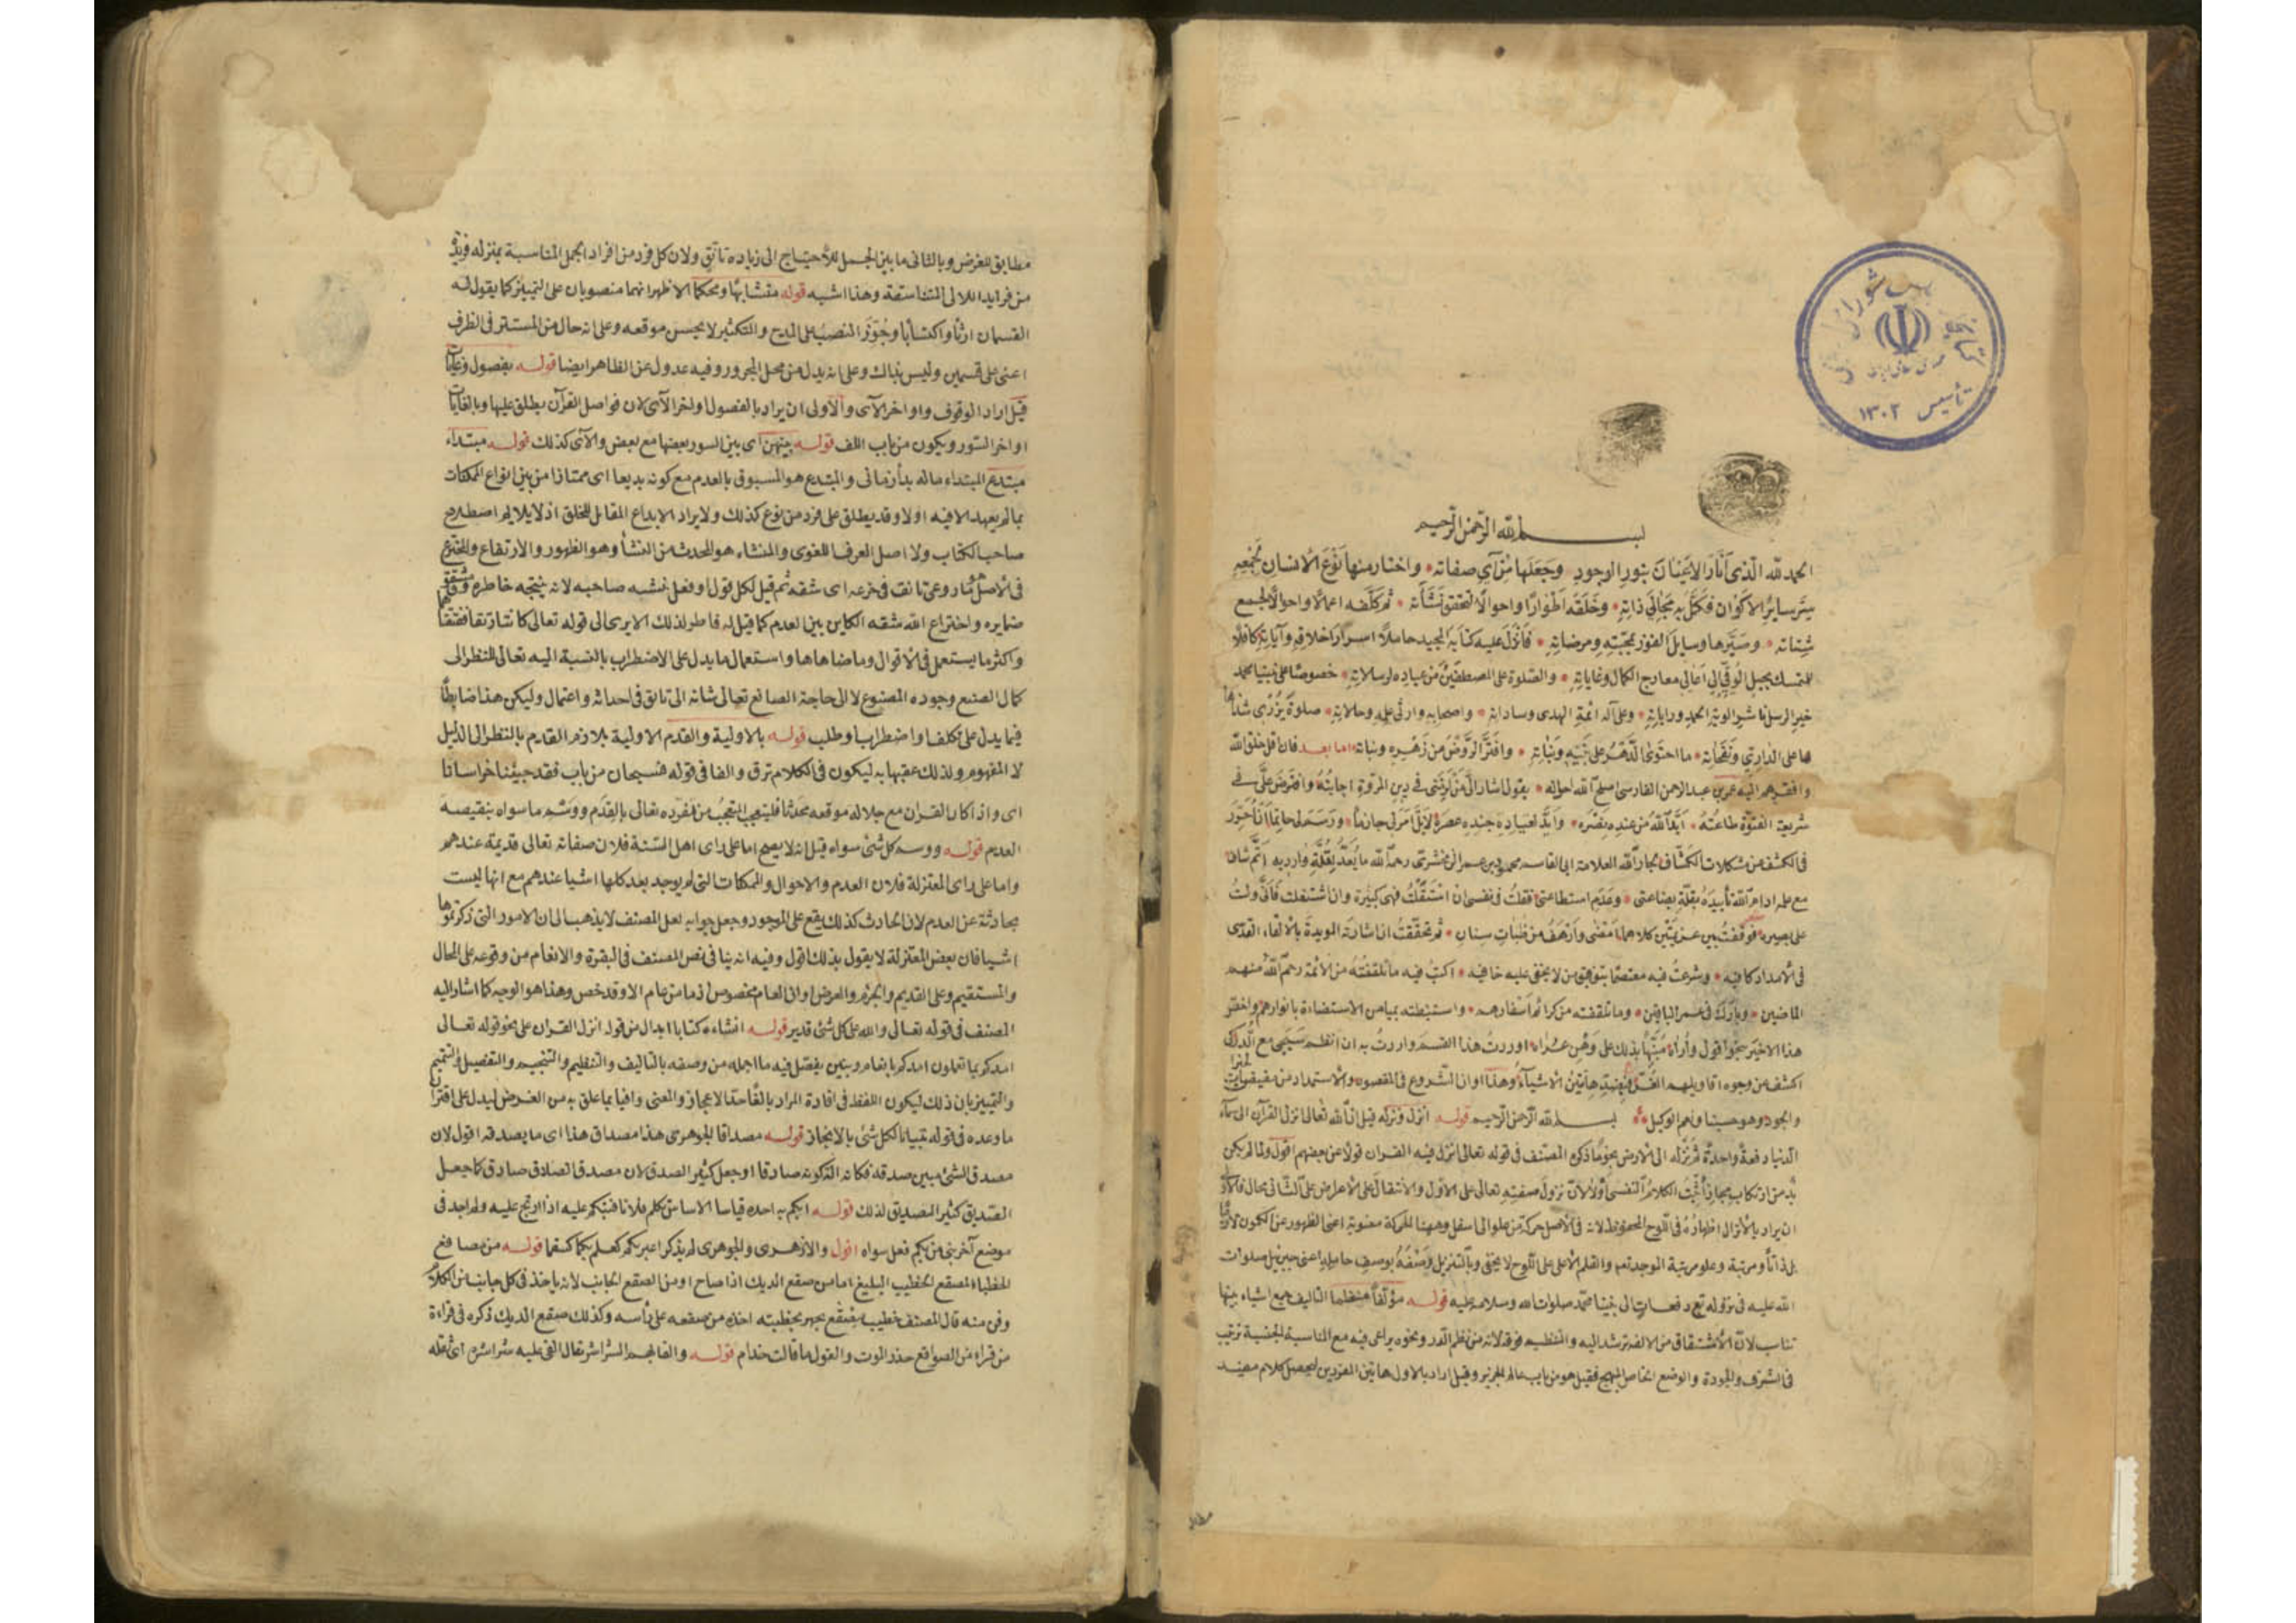 بسم الله الرحمن الرحيم
الحمد لله الذى أنار الاعيان بنور الوجود وجعلها مرآى صفاته واختار منها نوع الانسان بجمعه
سرّ ساير الاكوان فكمل به مجالى ذاته وخلقه اطوارًا واحوالًا لتحقق نشأته ثم كلفه اعمالا واحوالا لجمع
شتاته وصيّرها وسايل الفوز بمحبته ومرضاته فأنزل عليه كتابه المجيد حاملا اسرار اخلاقه وآياته كافلا
للتمسك بحبل الموقى الى اعالى معارج الكمال وغاياته والصلوة على المصطفين من عباده لرسالاته خصوصًا على نبينا محمد
خير الرسل ناشر الوية الحمد وراياته وعلى آله ائمة الهدى وساداته واصحابه وارثى علمه وحالاته صلوة يزرى شذاها
ها على الدارى ونفحاته ما احتوى الدهر على بنيه وبناته وافترّ الروض من زهره ونباته اما بعد فان اقل خلق الله
وافقرهم اليه عمر بن عبد الرحمن الفارسى اصلح الله احواله يقول اشار الىّ من لزمتنى فى دين المروة اجابته وافترض علىّ فى
شريعة الفتوة طاعته ايّد الله من عنده بنصره وايد لعباده جنده عصره لا بل امر لى جازمًا ورسم لى حاتمًا ان احرر
فى الكشف عن مشكلات الكشاف لجار الله العلامة ابى القاسم محمود بن عمر الزمخشرى رحمه الله ما يعدّ بقلة وارديه
مع علمه ادام الله تأييده بقلة بضاعتى وعدم استطاعتى فقلت فى نفسى ان استقلت فهى كبيرة وان اشتغلت فانى ولست
على بصيره فوقفت بين عزيمتين كلاهما امضى وارهف من ظبات سنان ثم تحققت ان اشارته المويدة بالالقاء القدسى
فى الامداد كافيه وشرعت فيه معتصمًا بتوفيق من لا يخفى عليه خافيه اكتب فيه ما تلقفته من الائمة رحم الله منهم
الماضين وبارك فى عمر الباقين وما تلقفته من كرائم اسفارهم واستنبطته بميامن الاستضاءة بانوارهم واخصّ
هذا الاخير بنحو اقول وأراه منبّهًا بذلك على وهن عراه اوردت هذا القسم واردت به ان انظم سيجى مع الدرّ
اكشف عن وجوه اقاويلهم هاتين الاشياء وهذا اوان الشروع فى المقصود والاستمداد من مفيض الخيرات
والجود وهو حسبنا ونعم الوكيل بسم الله الرحمن الرحيم قوله انزل ونزله قيل ان الله تعالى نزل القرآن الى سماء
الدنيا دفعة واحدة ثم نزله الى الارض نجومًا ذكره المصنف فى قوله تعالى انزل فيه القرآن قولا عن بعضهم اقول ولما لم يكن
بدّ من ارتكاب مجاز أثبت الكلام النفسى أو لا لان نزول صفته تعالى على الاول والانتقال على الاعراض على الثانى محال فالاولى
ان يراد بالانزال اظهاره فى اللوح المحفوظ لانه فى الاصل حركة من علو الى اسفل وههنا للحركة معنوية اعنى الظهور عن الكمون
بل ذاتًا ومرتبة وعلو مرتبة الموجد تعم والقلم الاعلى على اللوح لا يخفى وبالتنزيل وصفه بوصف حامله اعنى جبريل صلوات
الله عليه فى نزوله به دفعات الى نبينا محمد صلوات الله وسلامه عليه قوله مؤلفًا منظمًا التاليف جمع اشياء بينها
تناسب لان الاشتقاق من الالفة يرشد اليه والتنظيم فوقه لانه من نظم الدر ونحوه يراعى فيه مع المناسبة الجنسية ترتيب
فى الشرف والجودة والوضع الخاص البهيج فقيل هو من باب عالم نحرير وقيل اراد بالاول ما بين المفردين ليحصل كلام مفيد
مطابق
مطابق للغرض وبالثانى ما بين الجمل للاحتياج الى زياده تانق ولان كل فرد من افراد الجمل المناسبة بمنزله فريدة
من فرايد اللالى المتناسقة وهذا اشبه قوله متشابهًا ومحكمًا الاظهر انهما منصوبان على التمييز كما يقول له
القسمان ارثًا واكتسابًا وجُوّز النصب على المدح والتكثير لا يحسن موقعه وعلى انه حال من المستتر فى الظرف
اعنى على قسمين وليس بذاك وعلى انه بدل من محل المجرور وفيه عدول عن الظاهر ايضا قوله بفصول وغايات
قيل اراد الوقوف واواخر الآى والاولى ان يراد بالفصول اواخر الآى لان فواصل القرآن يطلق عليها وبالغايات
اواخر السور ويكون من باب اللف قوله بينهن اى بين السور بعضها مع بعض والآى كذلك قوله مبتداء
مبتدع المبتداء ماله بدأ زمانى والمبتدع هو المسبوق بالعدم مع كونه بديعا اى ممتازا من بين انواع الممكنات
بما لم يعهد الا فيه اولا وقد يطلق على فرد من نوع كذلك ولا يراد الابداع المقابل للخلق اذ لا يلايم اصطلاح
صاحب الكتاب ولا اصل العرف اللغوى والمنشاء هو المحدث من النشأ وهو الظهور والارتفاع والمخترع
فى الاصل ما روعى تانق فى خرعه اى شقه ثم قيل لكل قول او فعل نشبه صاحبه لانه ينتجه خاطره
ضمايره واختراع الله شقه الكاين بين العدم كما قيل له فاطر لذلك الا يرى الى قوله تعالى كانتا رتقا ففتقناهما
واكثر ما يستعمل فى الاقوال وما ضاهاها واستعمال ما يدل على الاضطراب بالنسبة اليه تعالى للنظر الى
كمال الصنع وجوده المصنوع لا الى حاجة الصانع تعالى شانه الى تانق فى احداثه واعتمال وليكن هذا ضابطًا
فيما يدل على تكلف واضطراب وطلب قوله بالاولية والقدم الاولية يلازم القدم بالنظر الى الدليل
لا المفهوم ولذلك عقبها به ليكون فى الكلام ترق والفا فى قوله فسبحان من باب فقد جئنا خراسانا
اى واذا كان القرآن مع جلاله موقعه محدثا فليتعجب المتعجب من تفرده تعالى بالقدم ووسم ما سواه بنقيصة
العدم قوله ووسم كل شئ سواه قيل انه لا يصح اما على راى اهل السنة فلان صفاته تعالى قديمة عندهم
واما على راى المعتزلة فلان العدم والاحوال والممكنات التى لم يوجد بعد كلها اشيا عندهم مع انها ليست
بحادثة عن العدم لان الحادث كذلك يقع على الموجود وجعل جوابه لعل المصنف لا يذهب الى ان الامور التى ذكرتموها
اشيا فان بعض المعتزلة لا يقول بذلك اقول وفيه انه ينافى نص المصنف فى البقرة والانعام من وقوعه على المحال
والمستقيم وعلى القديم والجرم والعرض وان العام مخصوص اذ ما من عام الا وقد خص وهذا هو الوجه كما اشار اليه
المصنف فى قوله تعالى والله على كل شئ قدير قوله انشاءه كتابا ابدال من قوله انزل القران على نحو قوله تعالى
امدكم بما تعلمون امدكم بانعام وبنين يفصل فيه ما اجمله من وصفه بالتاليف والتنظيم والتنجيم والتفصيل والتتميم
والتمييز بان ذلك ليكون اللفظ فى افادة المراد بالغًا حد الاعجاز والمعنى وافيا بما علق به من الغرض ليدل على اقتران
ما وعده فى قوله تبيانا لكل شئ بالانجاز قوله مصداقا الجوهرى هذا مصداق هذا اى ما يصدقه اقول لان
مصدق الشئ مبين صدقه فكانه آلة كونه صادقا او جعل كثير الصدق لان مصدق الصادق صادق كما جعل
الصديق كثير التصديق لذلك قوله ابكم به احده قياسا الاساس تكلم فلان فتبكم عليه اذا ارتج عليه ولم اجد فى
موضع آخر بنى من بكم فعل سواه اقول والازهرى والجوهرى لم يذكرا غير بكم كعلم بكما قوله من مصاقع
الخطباء المصقع الخطيب البليغ اما من صقع الديك اذا صاح او من الصقع الجانب لانه ياخذ فى كل جانب من الكلام
وفن منه قال المصنف خطيب مصقع يجهر بخطبته اخذه من صقعه على رأسه وكذلك صقع الديك ذكره فى قراءة
من قراء من الصواقع حذر الموت والقول ما قالت حذام قوله والقا لهم الشراشر يقال القى عليه شراشره اى ثقله
كتابخانه مجلس شوراى ملى
تأسيس ۱۳۰۲